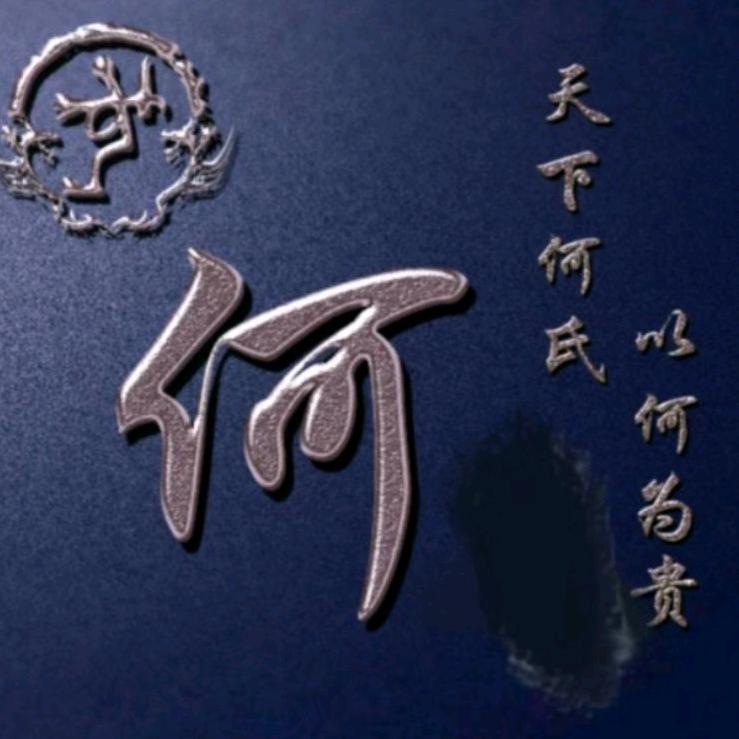 何
天下何氏
以何为贵